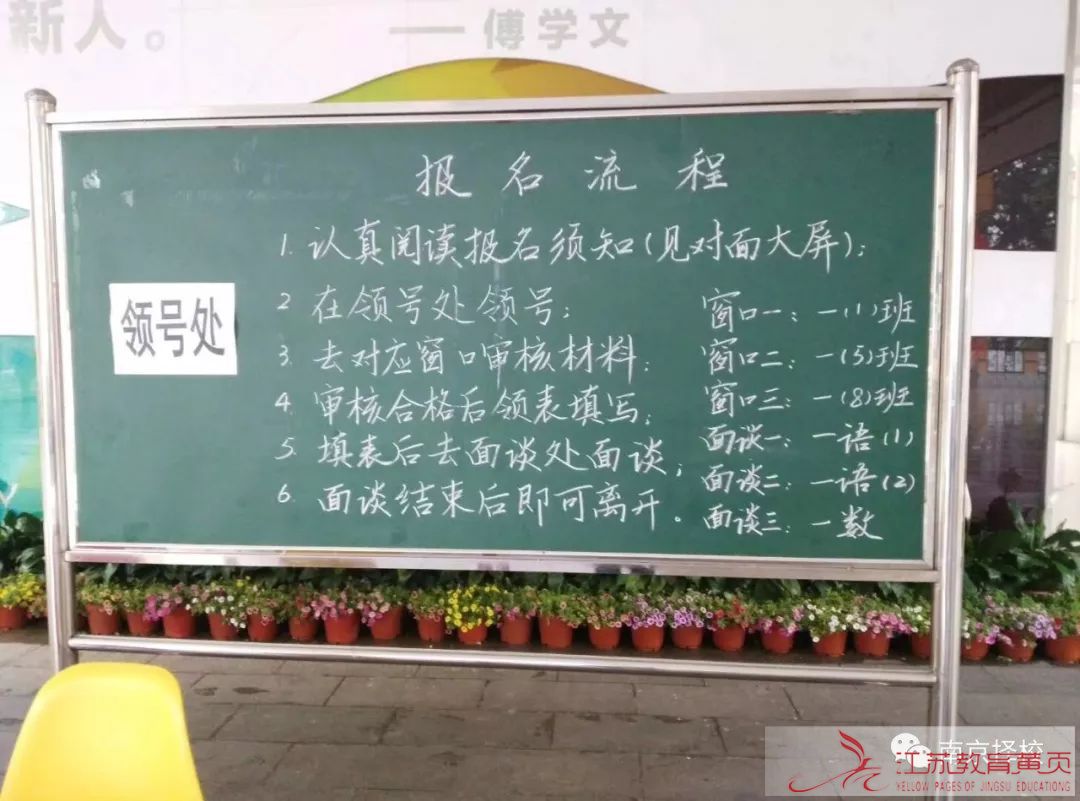 新人。
——傅学文
报名流程
1. 认真阅读报名须知(见对面大屏);
2 在领号处领号;
3. 去对应窗口审核材料;
4. 审核合格后领表填写;
5. 填表后去面谈处面谈;
6. 面谈结束后即可离开。
窗口一:一(1)班
窗口二:一(5)班
窗口三:一(8)班
面谈一:一语(1)
面谈二:一语(2)
面谈三:一数
领号处
南京择校
江苏教育黄页
YELLOW PAGES OF JINGSU EDUCATIONG